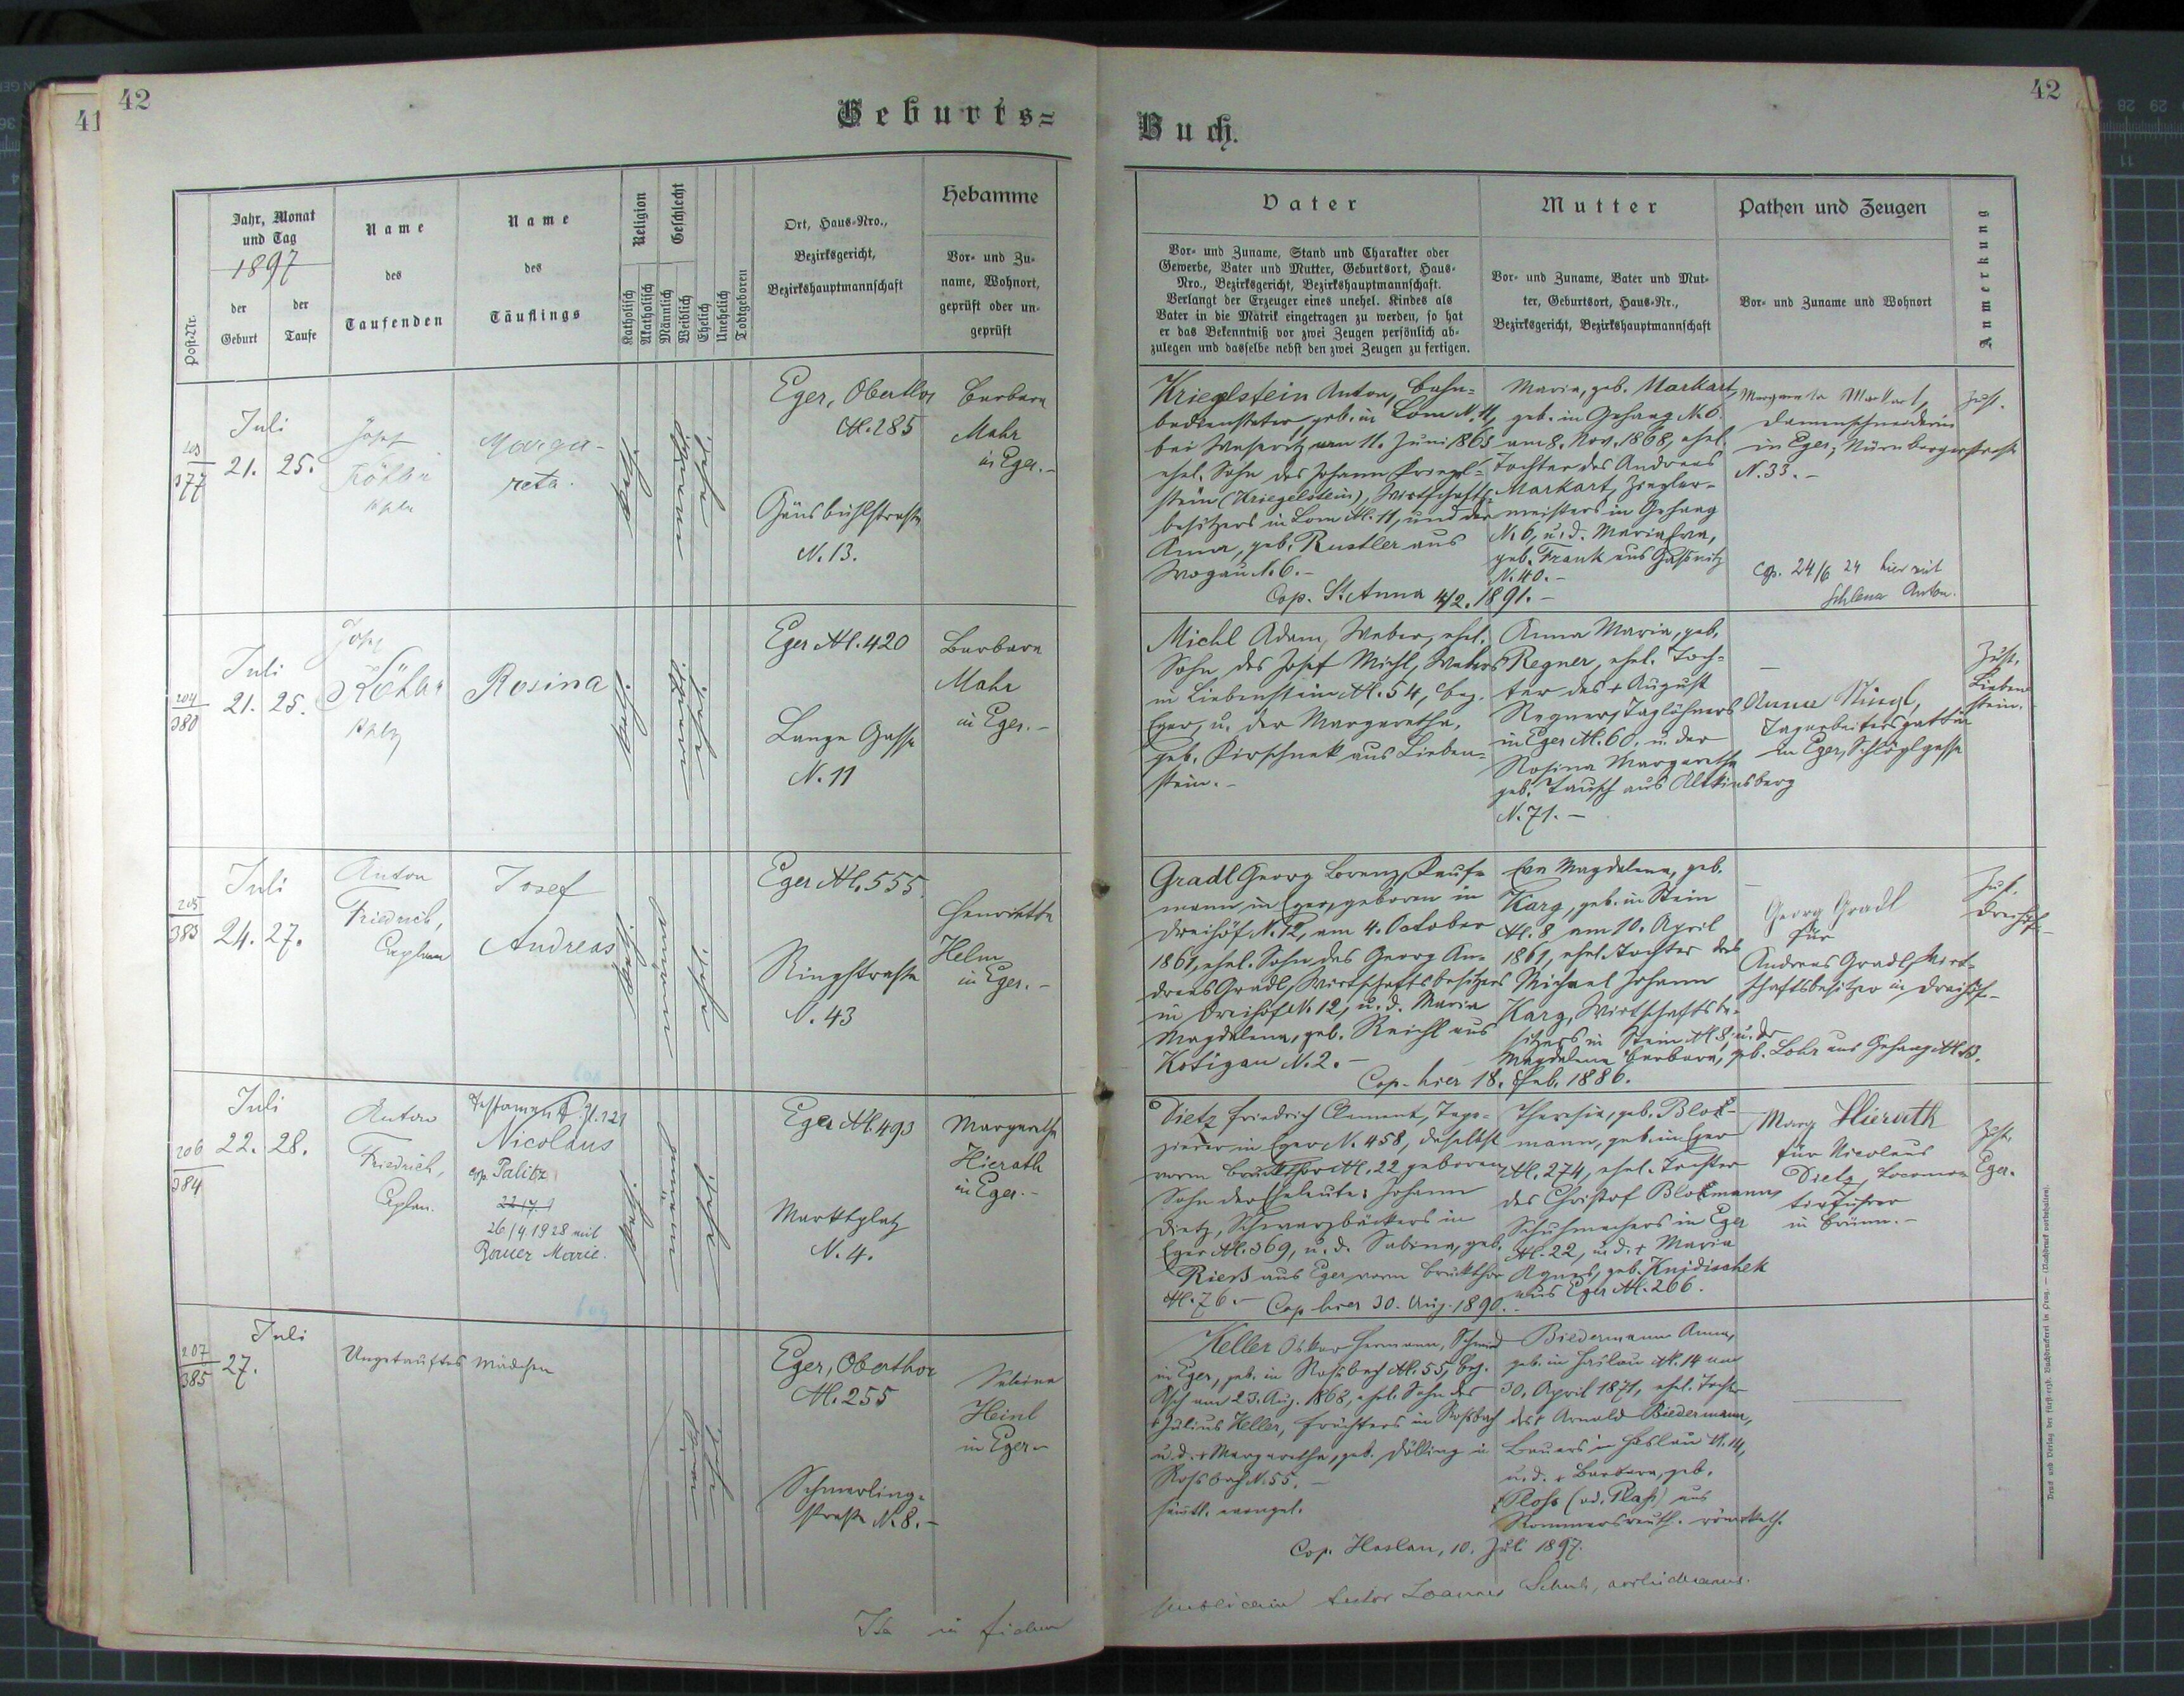 41
42
Geburts=
Post-Nr.
Jahr, Monat
und Tag
1897
der
Geburt
der
Taufe
Name
des
Taufenden
Name
des
Täuflings
Religion
Katholisch
Akatholisch
Geschlecht
Männlich
Weiblich
Ehelich
Unehelich
Todtgeboren
Ort, Haus-Nro.,
Bezirksgericht,
Bezirkshauptmannschaft
Hebamme
Vor- und Zu-
name, Wohnort,
geprüft oder un-
geprüft
203
377
Juli
21. 25.
Josef
Köhler
Marga-
reta.
Eger, Oberthor
N. 285
Gänsbühlstraße
N. 13.
Barbara
Mahr
in Eger.-
204
380
Juli
21. 25.
Josef
Köhler
Rosina
Eger N. 420
Lange Gasse
N. 11
Barbara
Mahr
in Eger.-
205
383
Juli
24. 27.
Anton
Friedrich,
Caplan
Josef
Andreas
Eger N. 555
Ringstraße
N. 43
Henrietta
Helm
in Eger.-
206
384
Juli
22. 28.
Anton
Friedrich,
Caplan.
Nicolaus
cop. Palitz
26/4 1928 mit
Bauer Marie.
Eger N. 493
Marktplatz
N. 4.
Margaretha
Hierath
in Eger.-
207
385
Juli
27.
Ungetauftes Mädchen
Eger, Oberthor
N. 255
Schmerling-
straße N. 8.-
Sabina
Heinl
in Eger-
Ita in fidem
42
Buch.
Vater
Vor- und Zuname, Stand und Charakter oder
Gewerbe, Vater und Mutter, Geburtsort, Haus-
Nro., Bezirksgericht, Bezirkshauptmannschaft.
Verlangt der Erzeuger eines unehel. Kindes als
Vater in die Matrik eingetragen zu werden, so hat
er das Bekenntniß vor zwei Zeugen persönlich ab-
zulegen und dasselbe nebst den zwei Zeugen zu fertigen.
Mutter
Vor- und Zuname, Vater und Mut-
ter, Geburtsort, Haus-Nr.,
Bezirksgericht, Bezirkshauptmannschaft
Pathen und Zeugen
Vor- und Zuname und Wohnort
Anmerkung
Krieglstein Anton, Bahn-
bediensteter, geb. in Lom N. 11,
bei Weseritz am 11. Juni 1865
ehel. Sohn des Johann Kriegl-
stein (Kriegelstein), Wirtschafts-
besitzers in Lom N. 11, und der
Anna, geb. Rustler aus
Wogau N. 6.-
Cop. St. Anna 4/2. 1891.-
Maria, geb. Markart,
geb. in Gehaag N. 6
am 8. Nov. 1868, ehel.
Tochter des Andreas
Markart, Ziegler-
meisters in Gehaag
N. 6, u. d. Maria Eva,
geb. Frank aus Gaßnitz
N. 40.-
Margareta Markart,
Damenschneiderin
in Eger, Nürnbergerstraße
N. 33.-
cop. 24/6 24 hier mit
Schlena Anton.
Zust.
Michl Adam, Weber, ehel.
Sohn des Josef Michl, Webers
in Liebenstein N. 54, Bez.
Eger, u. der Margaretha,
geb. Kirschnek aus Lieben-
stein.-
Anna Maria, geb.
Regner, ehel. Toch-
ter des + August
Regner, Taglöhners
in Eger N. 60, u. der
Rosina Margaretha
geb. Tausch aus Altkinsberg
N. 71.-
Tagarbeitersgattin
in Eger, Schlöglgasse
Zust.
Lieben-
stein.
Gradl Georg Lorenz, Kauf-
mann in Eger, geboren in
Dreihöf N. 12, am 4. October
1861, ehel. Sohn des Georg An-
dreas Gradl, Wirtschaftsbesitzers
in Dreihöf N. 12, u. d. Maria
Magdalena, geb. Reichl aus
Kötigau N. 2.-
Cop. hier 18. Feb. 1886.
Eva Magdalena, geb.
Karg, geb. in Stein
N. 8 am 10. April
1861, ehel. Tochter des
Michael Johann
Karg, Wirtschaftsbe-
sitzers in Stein N. 8, u. der
Magdalena Barbara, geb. Lohr aus Gehaag N. 13.
Georg Gradl
für
Andreas Gradl, Wirt-
schaftsbesitzer in Dreihöf-
Zust.
Dreihöf-
Dietz Friedrich Clement, Tape-
zierer in Eger N. 458, daselbst
vorm Bruckthor N. 22 geboren,
Sohn der Eheleute: Johann
Dietz, Schwarzbäckers in
Eger N. 369, u. d. Sabina, geb.
Rieß aus Eger vorm Bruckthor
N. 76.- Cop. hier 30. Aug. 1890.-
Theresia, geb. Blok-
mann, geb. in Eger
N. 274, ehel. Tochter
des Christof Blokmann,
Schuhmachers in Eger
N. 22, u. d. + Maria
Agnes, geb. Knidischek
aus Eger N. 266.
Marg Hieruth
für Nicolaus
Dietz, Locomo-
tivführer
in Brünn.-
Zust.
Eger.
Keller Oskar Hermann, Schmied
in Eger, geb. in Roßbach N. 55, Bez.
Asch am 23. Aug. 1868, ehel. Sohn des
+ Julius Keller, Frächters in Roßbach
u. d. + Margaretha, geb. Dölling in
Roßbach N. 55.-
sämtl. evangel.
Biedermann Anna,
geb. in Haslau N. 14 am
30. April 1871, ehel. Tochter
des + Arnold Biedermann,
Bauers in Haslau N. 14,
u. d. + Barbara, geb.
Ploß (od. Plaß) aus
Rommersreuth. röm. kath.
Cop. Haslau, 10. Juli 1897.
Druck und Verlag der fürst-erzb. Buchdruckerei in Prag. — (Nachdruck vorbehalten).